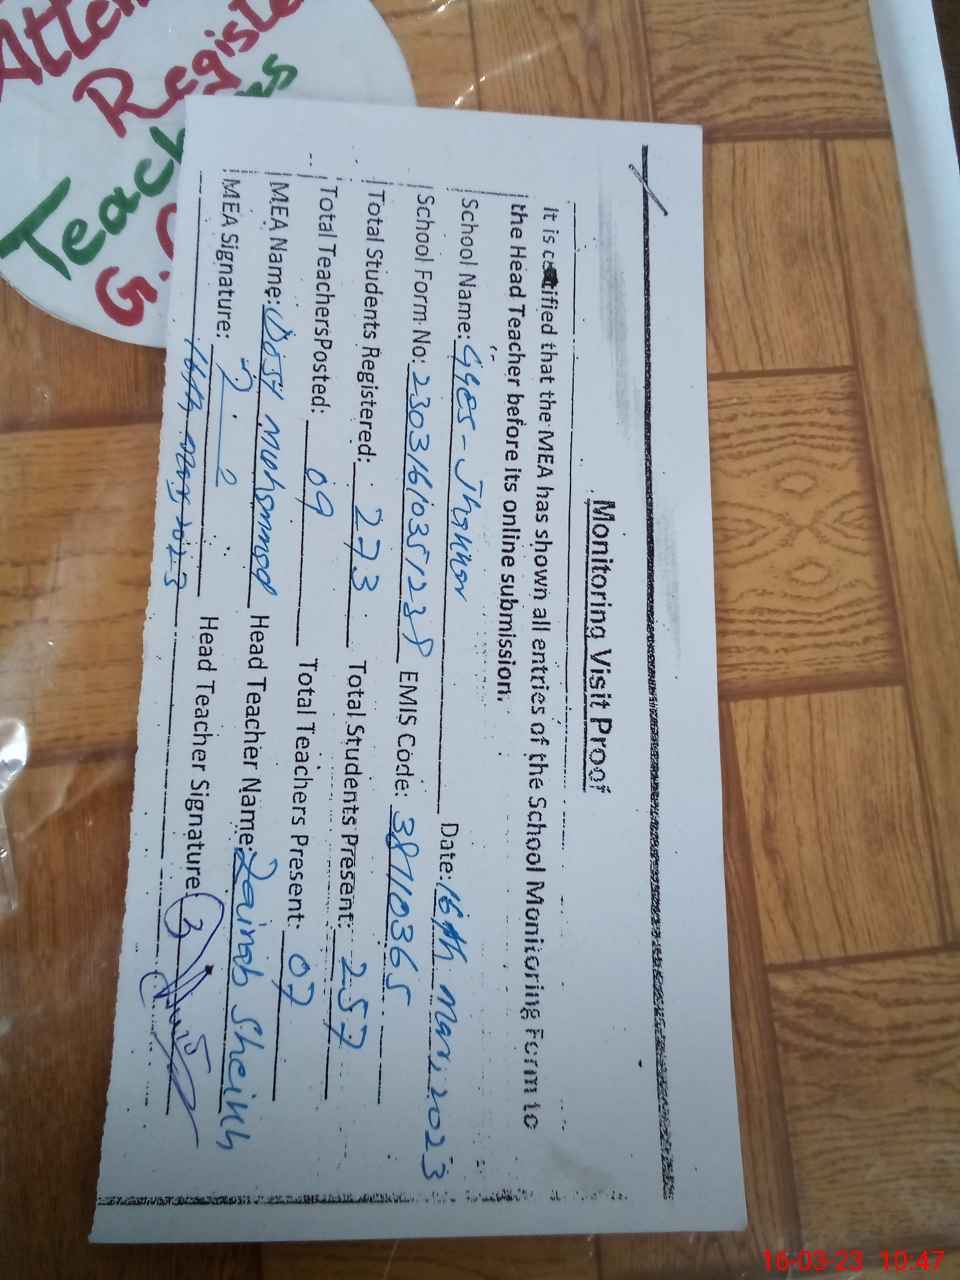 Atten
Register
Teachers
G.G
Monitoring Visit Proof
It is certified that the MEA has shown all entries of the School Monitoring Form to
the Head Teacher before its online submission.
School Name: GGES - Jhannor Date: 16th Mar, 2023
School Form No: 2303161035123 EMIS Code: 38110365
Total Students Registered: 273 Total Students Present: 257
Total TeachersPosted: 09 Total Teachers Present: 07
MEA Name: Dost Muhammad Head Teacher Name: Zainab Sheikh
MEA Signature: Head Teacher Signature
16th Mar 2023
16-03-23 10:47